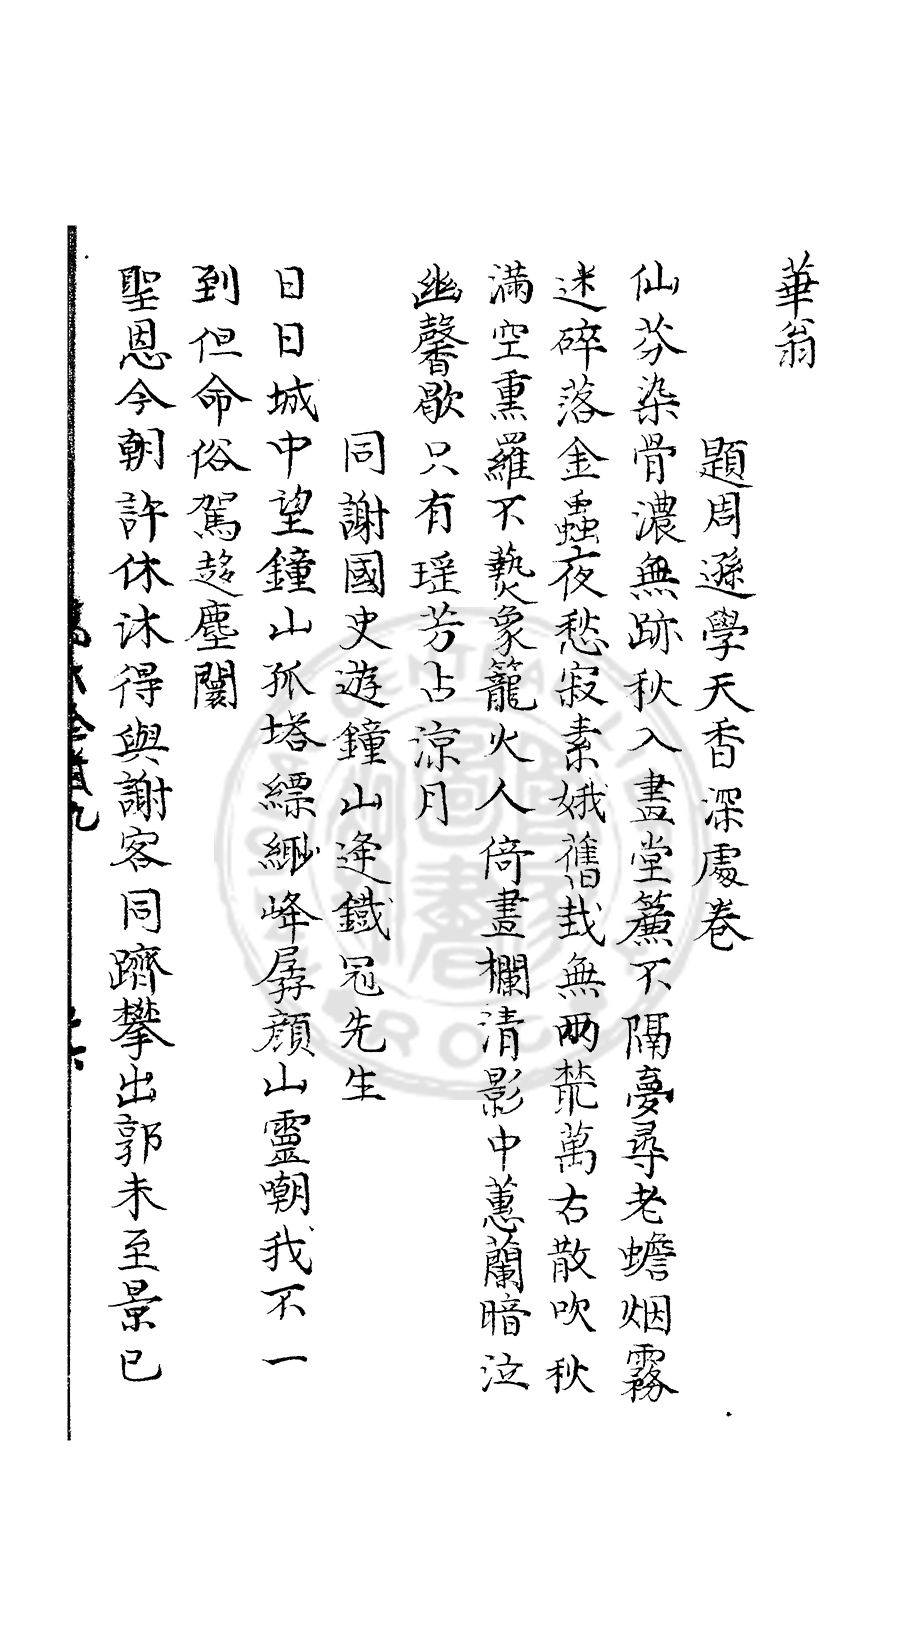 華翁
題周遜學天香深處卷
仙芬染骨濃無跡秋入畫堂簾不隔夢尋老蟾烟霧
迷碎落金蟲夜愁寂素娥舊栽無兩叢萬右散吹秋
滿空熏羅不爇象籠火人倚畫欄清影中蕙蘭暗泣
幽馨歇只有瑶芳占凉月
同謝國史遊鐘山逢鐵冠先生
日日城中望鐘山孤塔縹緲峰孱顔山靈嘲我不一
到但命俗駕趍塵闤
聖恩今朝許休沐得與謝客同躋攀出郭未至景已
CENTRAL
ROC
圖書